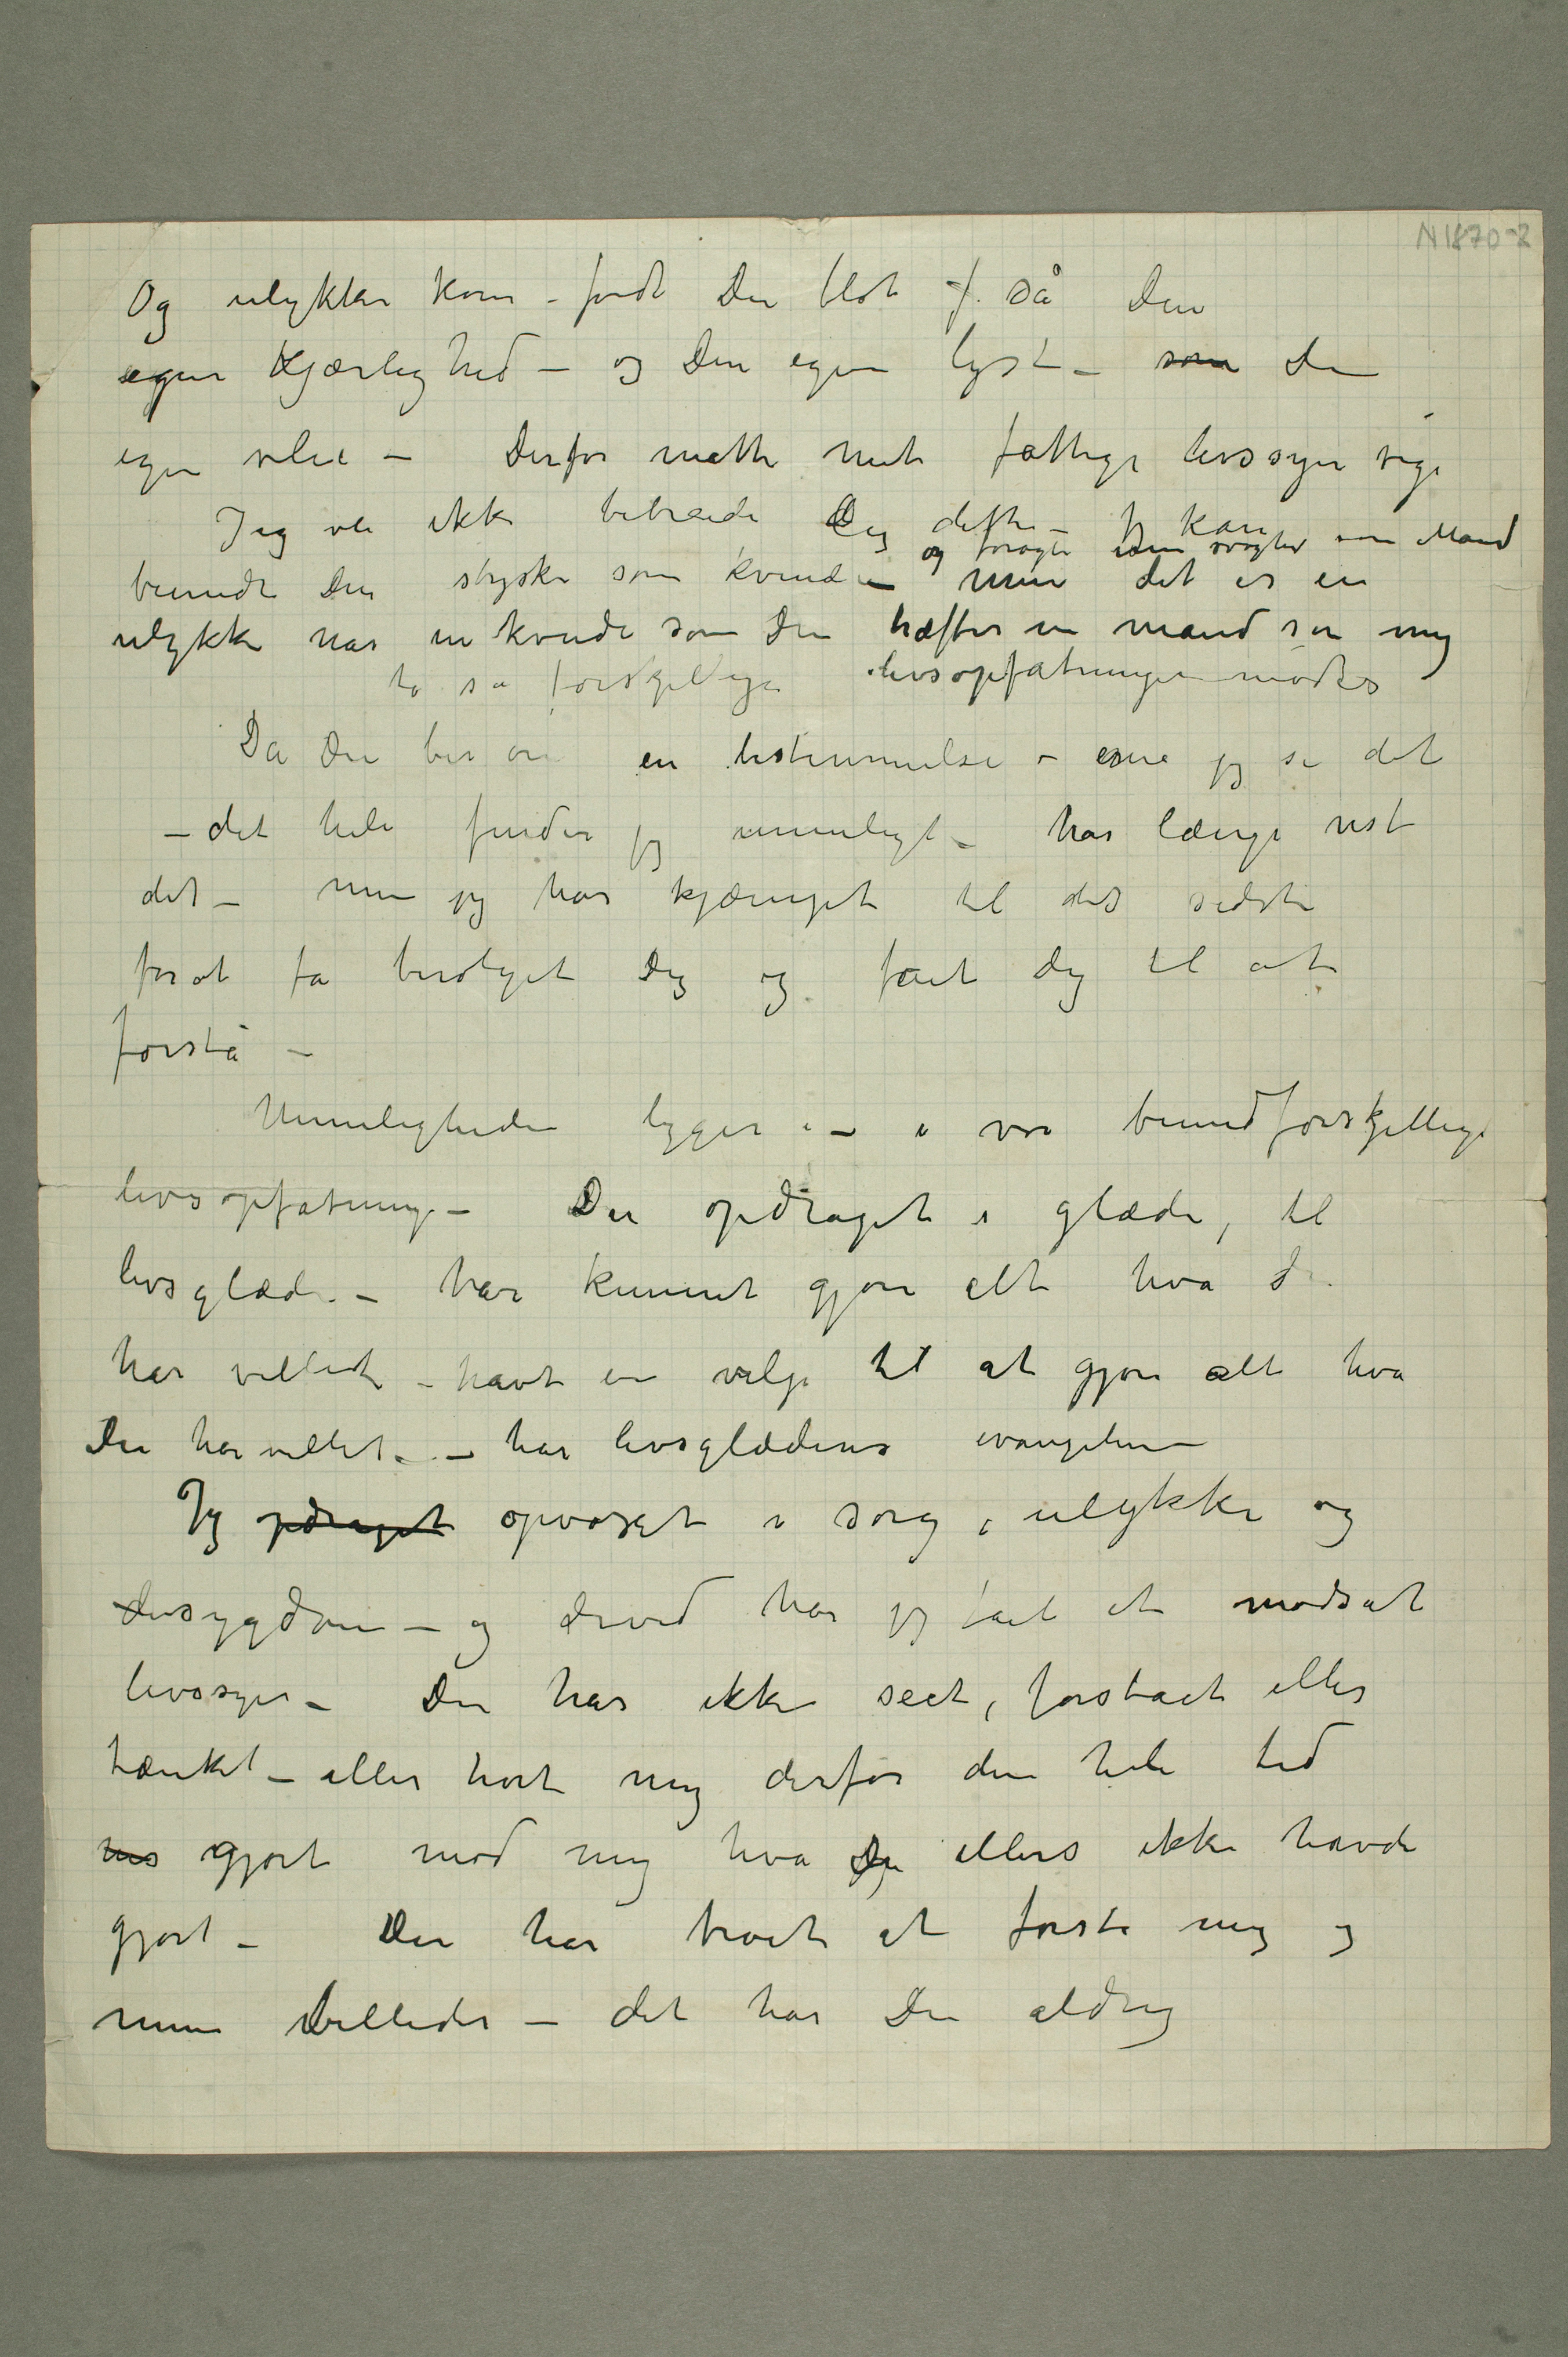 N 1870-2
Og ulykken kom – fordi Du blot så Din
egen Kjærlighed – og Din egen lyst – som Din
egen vilie – Derfor måtte mit fattige livssyn vige
Jeg vil ikke bebreide Dig dette – Jeg kan
og foragte min svaghed som Mand
beundre Din styrke som kvinde – men det er en
ulykke når en kvinde som Du træffer en mand som mig
to så forskjellige livsopfatninger mødes
Da Du ber om en bestemmelse – jeg se det
– det hele finder jeg umuligt – har længe vist
det – men jeg har kjæmpet til det sidste
forat få beroliget Dig og fået dig til at
forstå –
Umuligheden ligger i – i vor bundforskjellige
livsopfatning – Du opdraget i glæde, til
livsglæde – har kunnet gjøre alt hva du
har villet – havt en vilje til at gjøre alt hva
Du har villet – har livsglædens evangelium
Jeg opdraget opvoxet i sorg, ulykke og
sygdom – og derved har jeg fået et modsat
livssyn – Du har ikke seet, forstået eller
tænkt – eller hørt mig derfor den hele tid
gjort mod mig hva Du ellers ikke havde
gjort – Du har troet at forstå mig og
mine billeder – det har Du aldrig